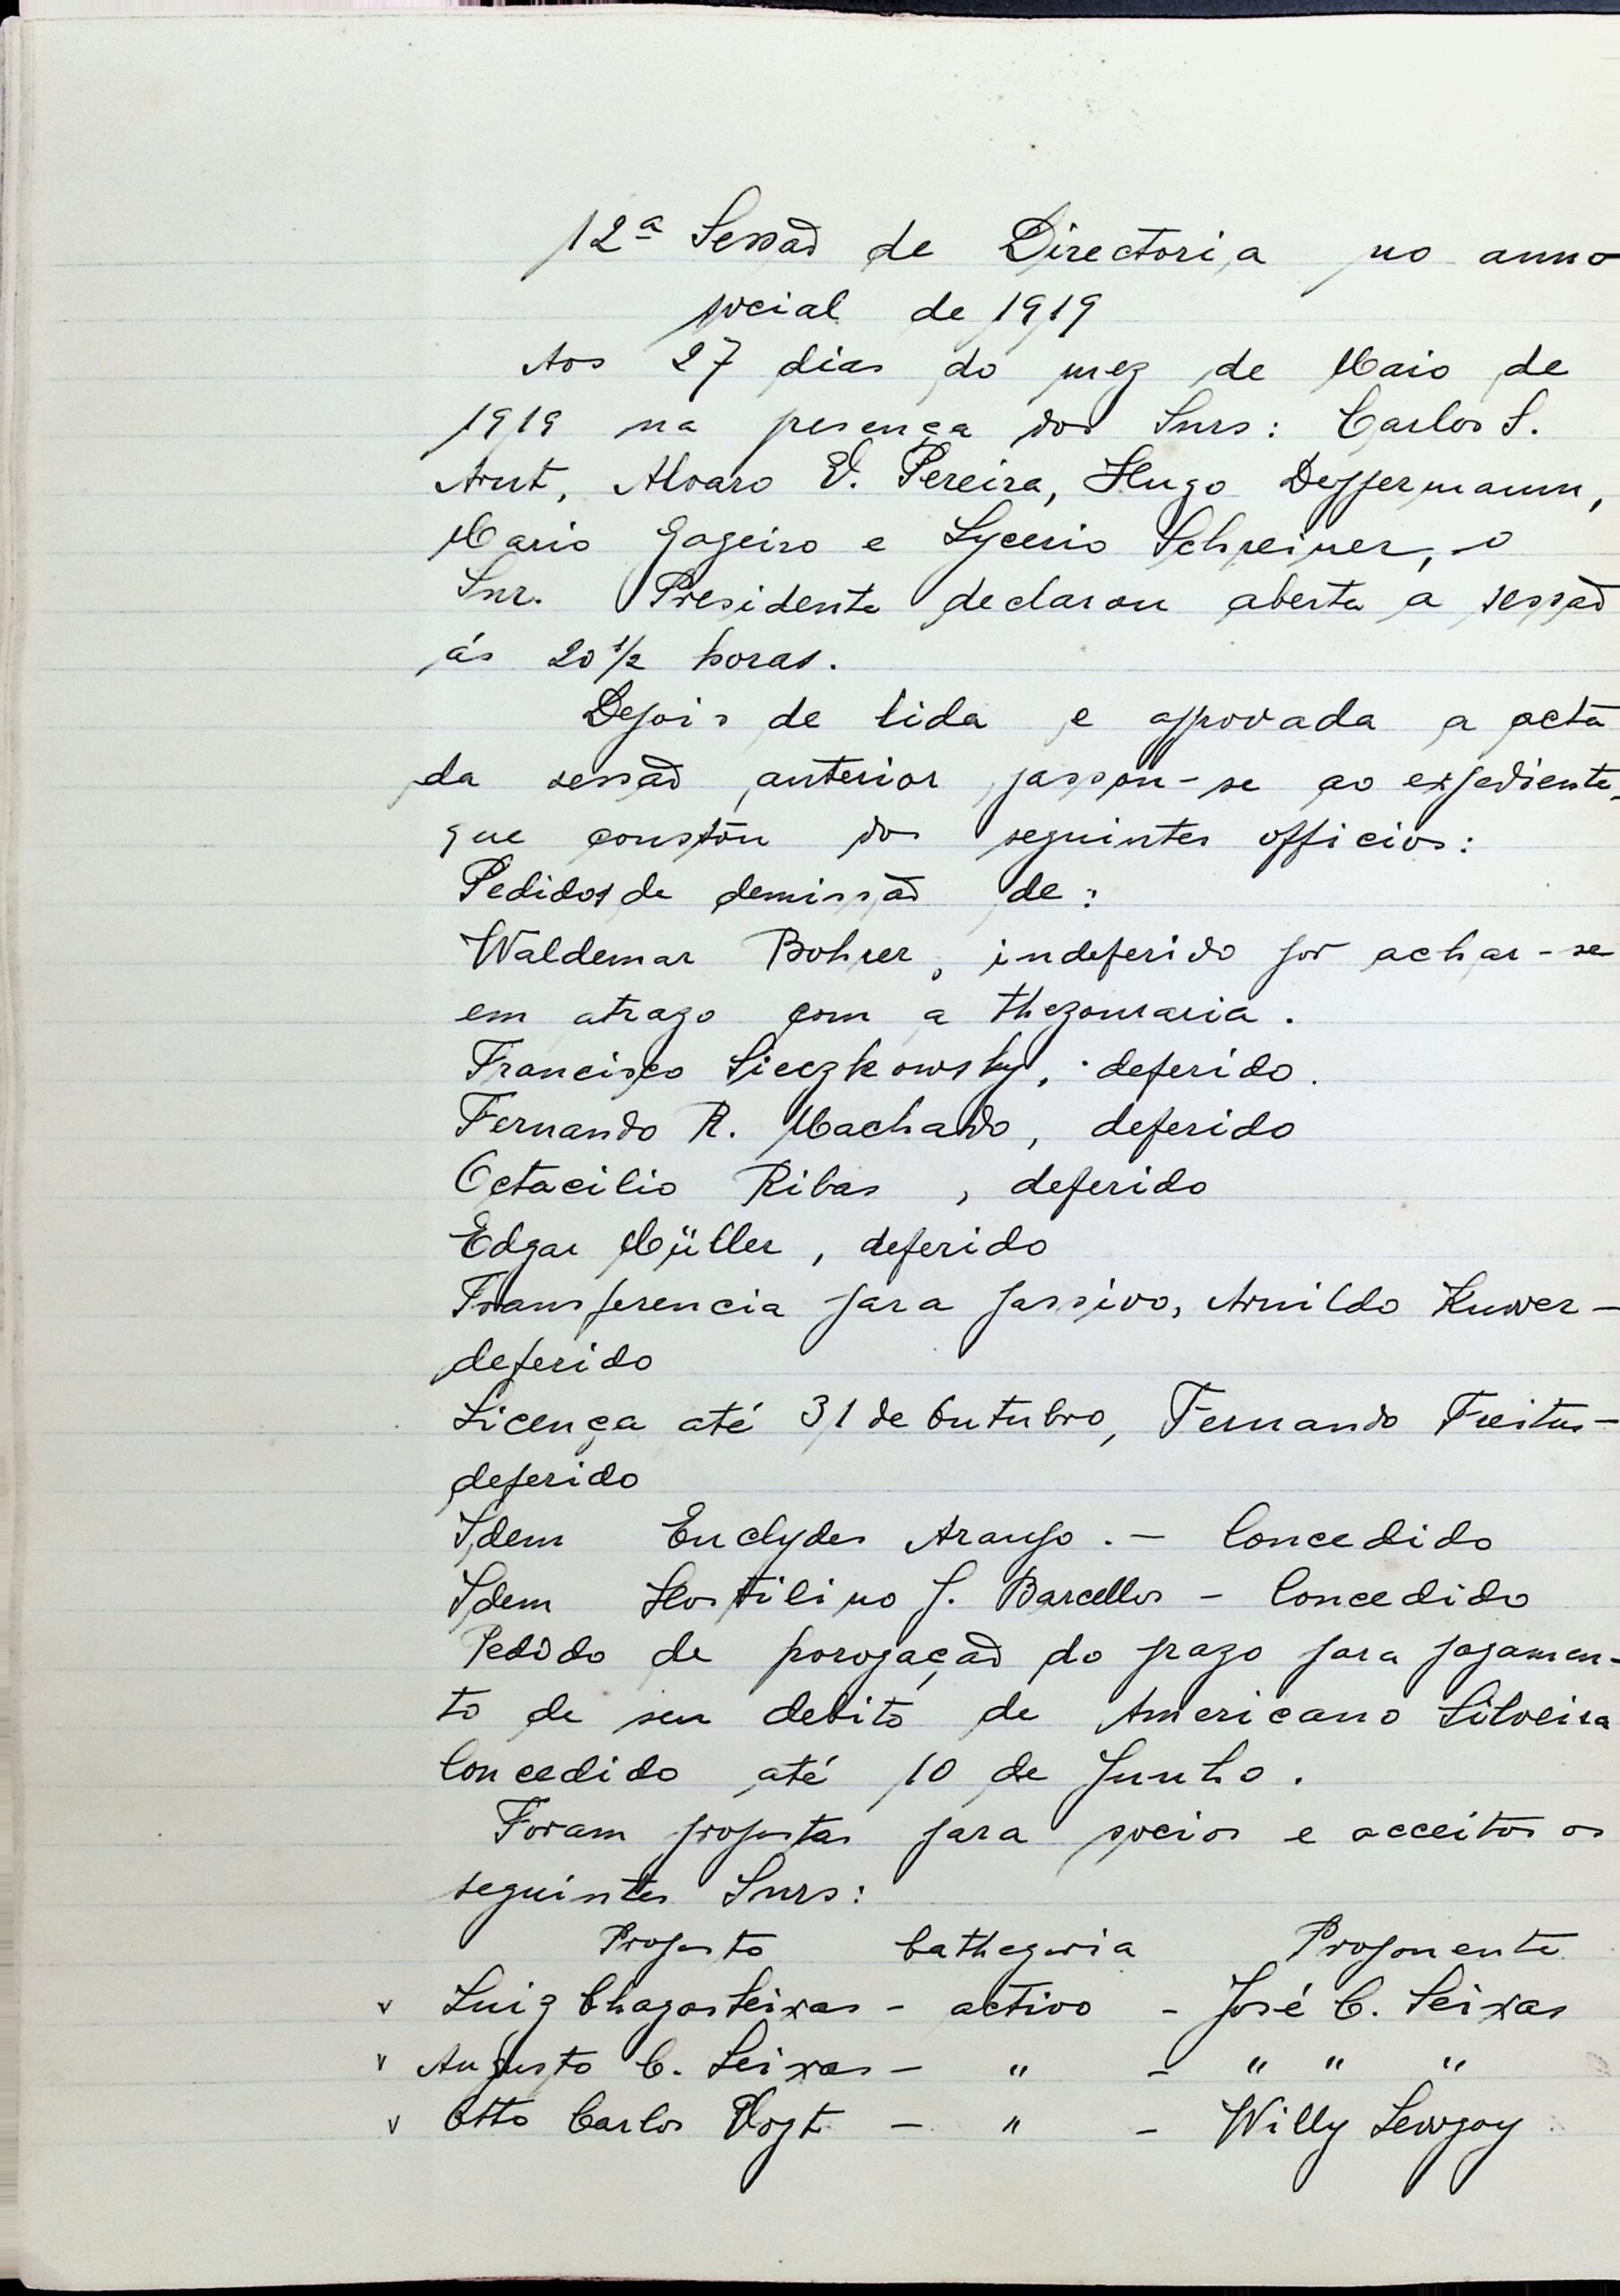 12ª Sessão de Directoria no anno
social de 1919
Aos 27 dias do mez de Maio de
1919 na presença dos Snrs: Carlos S.
Arnt, Alvaro E. Pereira, Hugo Deppermann,
Mario Gageiro e Lycerio Schreiner, o
Snr. Presidente declarou aberta a sessão
ás 20 1/2 horas.
Depois de lida e aprovada a acta
da sessão anterior passou-se ao expediente,
que constou dos seguintes officios:
Pedidos de demissão de:
Waldemar Bohrer, indeferido por achar-se
em atrazo com a thezouraria.
Francisco Sieczkowsky, deferido.
Fernando R. Machado, deferido
Octacilio Ribas, deferido
Edgar Müller, deferido
Transferencia para passivo, Arnildo Kuwer -
deferido
Licença até 31 de Outubro, Fernando Freitas -
deferido
Idem Euclydes Araujo. - Concedido
Idem Hostilino J. Barcellos - Concedido
Pedido de porogação do prazo para pagamen-
to de seu debito de Americano Silveira
Concedido até 10 de Junho.
Foram propostas para socios e acceitos os
seguintes Snrs:
Proposto Cathegoria Proponente
v Luiz Chagas Seixas - activo - José C. Seixas
v Augusto C. Seixas - " - " " "
v Otto Carlos Vogt - " - Willy Lewgoy